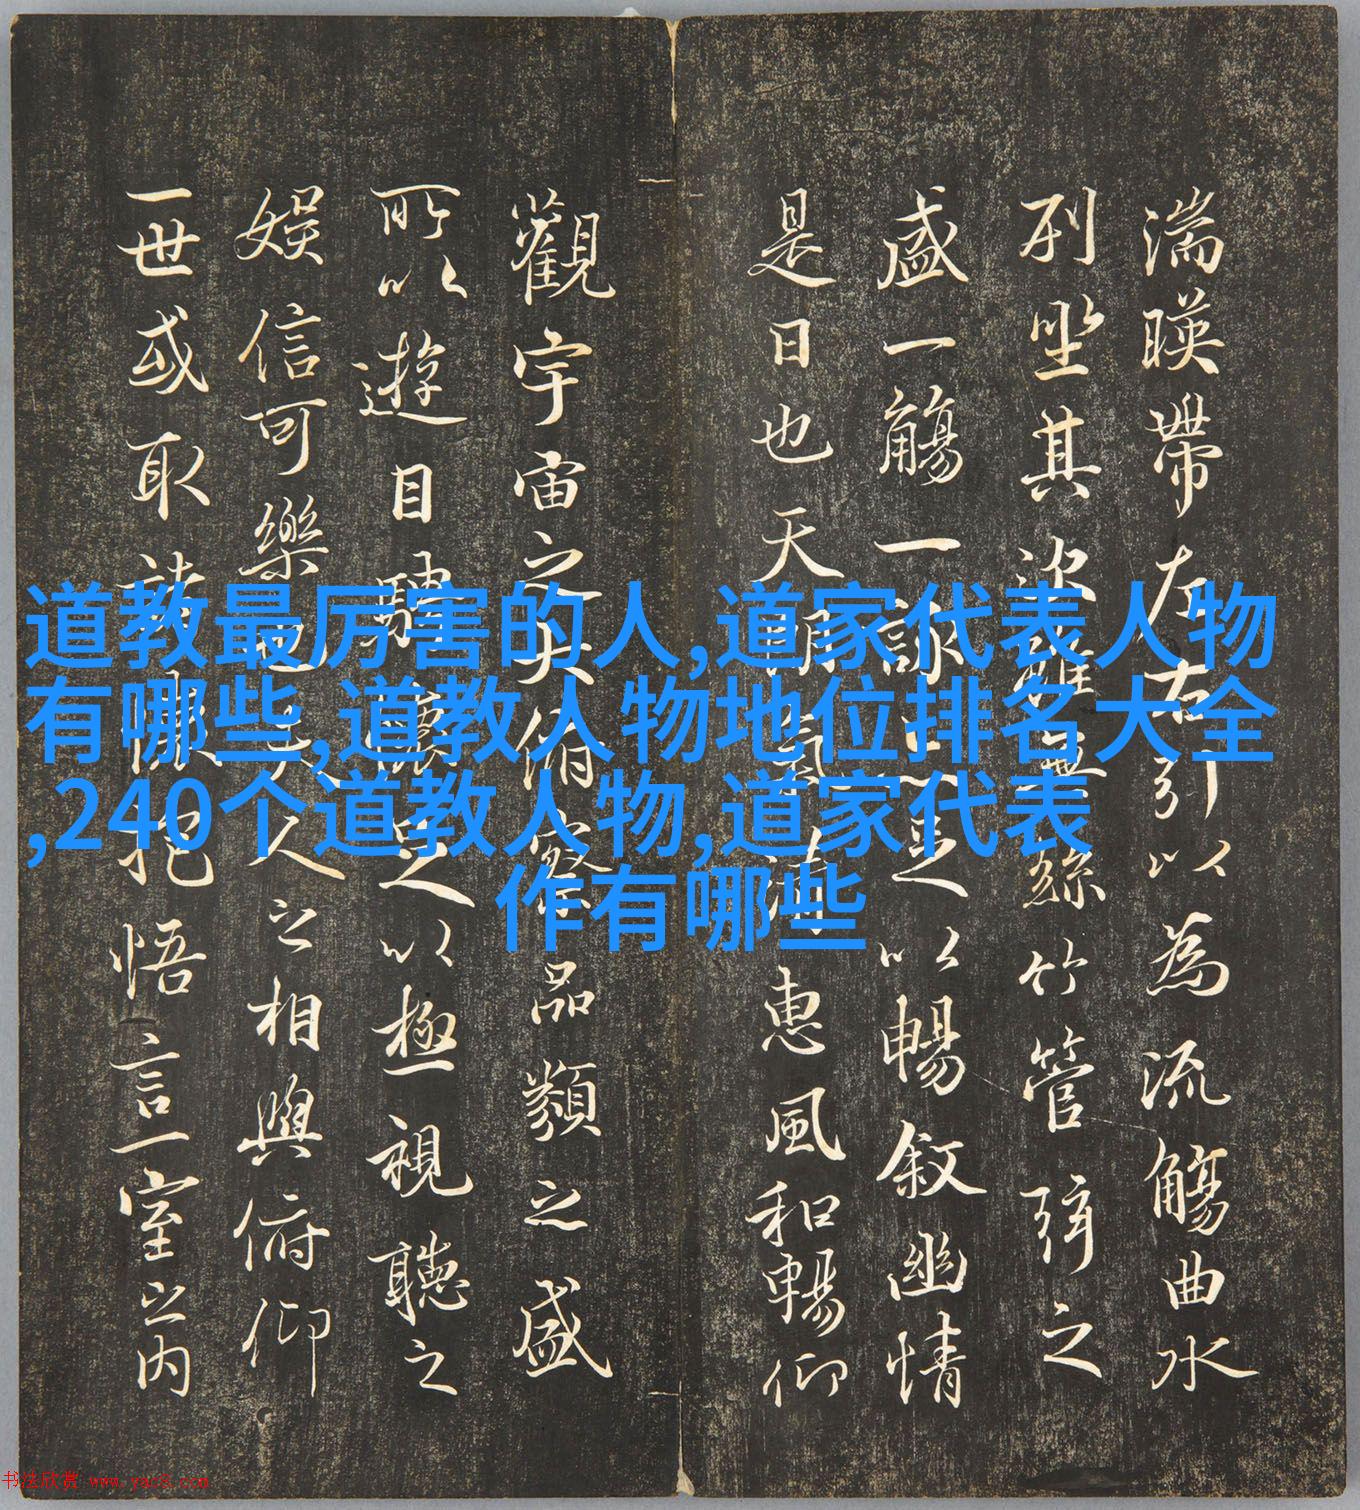 湍暎帶左右引以為流觴曲水
列坐其次雖無絲竹管弦之
盛一觴一詠亦足以暢敘幽情
是日也天朗氣清惠風和暢仰
觀宇宙之大俯察品類之盛
所以遊目騁懷足以極視聽之
娛信可樂也夫人之相與俯仰
一世或取諸懷抱悟言一室之內
道教最厉害的人,道家代表人物
有哪些,道教人物地位排名大全
,240个道教人物,道家代表
作有哪些
书法欣赏 www.yac8.com